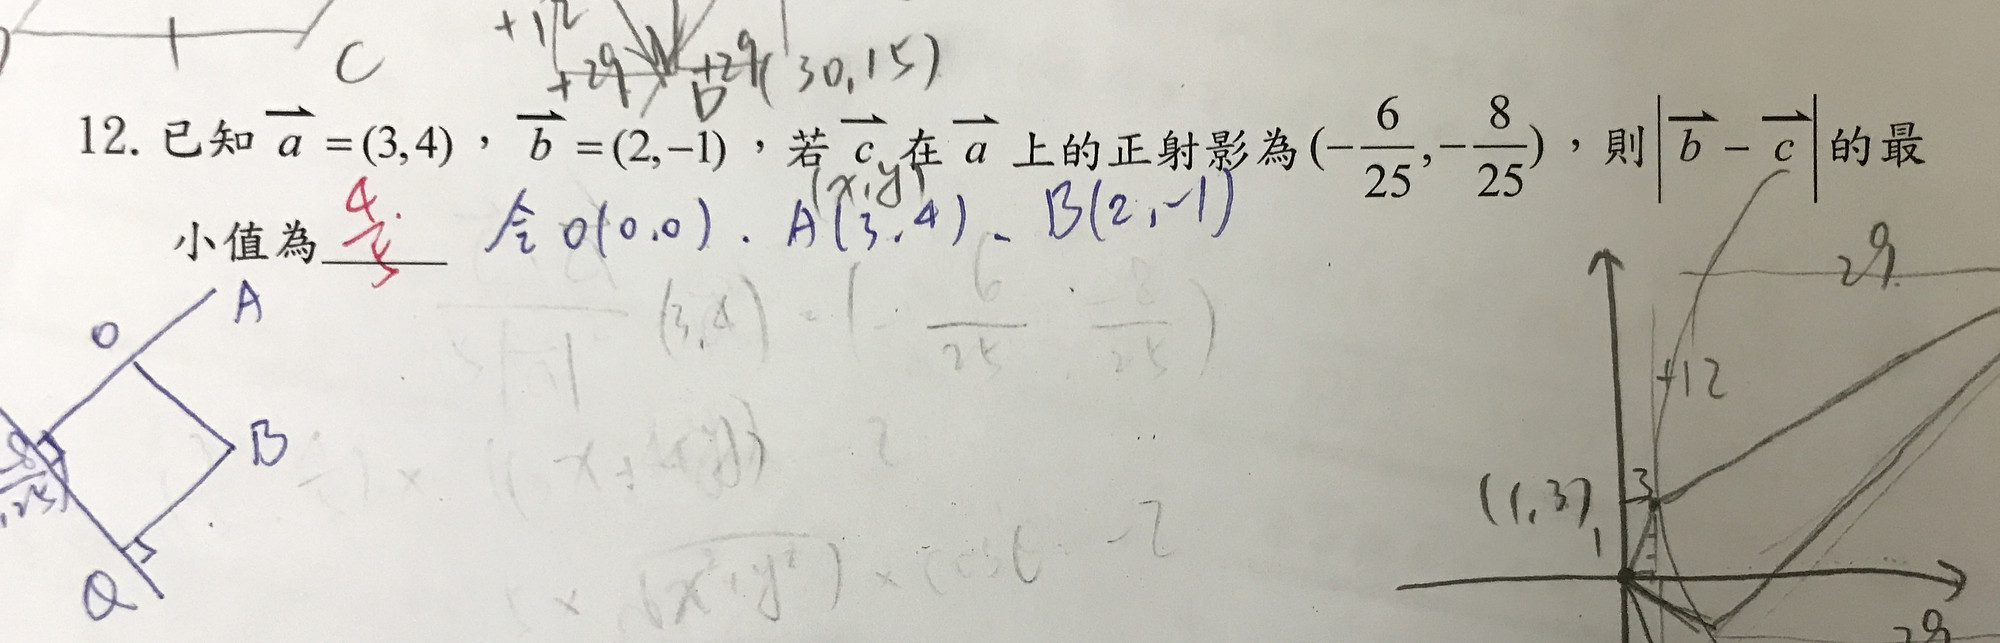 C
+12
+29 +29 (30,15)
D
12. 已知 a⃗ = (3,4)，b⃗ = (2,−1)，若 c⃗ 在 a⃗ 上的正射影為 (−6/25, −8/25)，則 |b⃗ − c⃗| 的最
(x,y)
小值為 4/5 令 O(0,0). A(3,4)、B(2,-1)
A
O
B
Q
(3,4) = (- 6/25 -8/25)
(x+4y) 2
√(x²+y²) × cosθ -2
29
+12
(1,3)
3
1
29